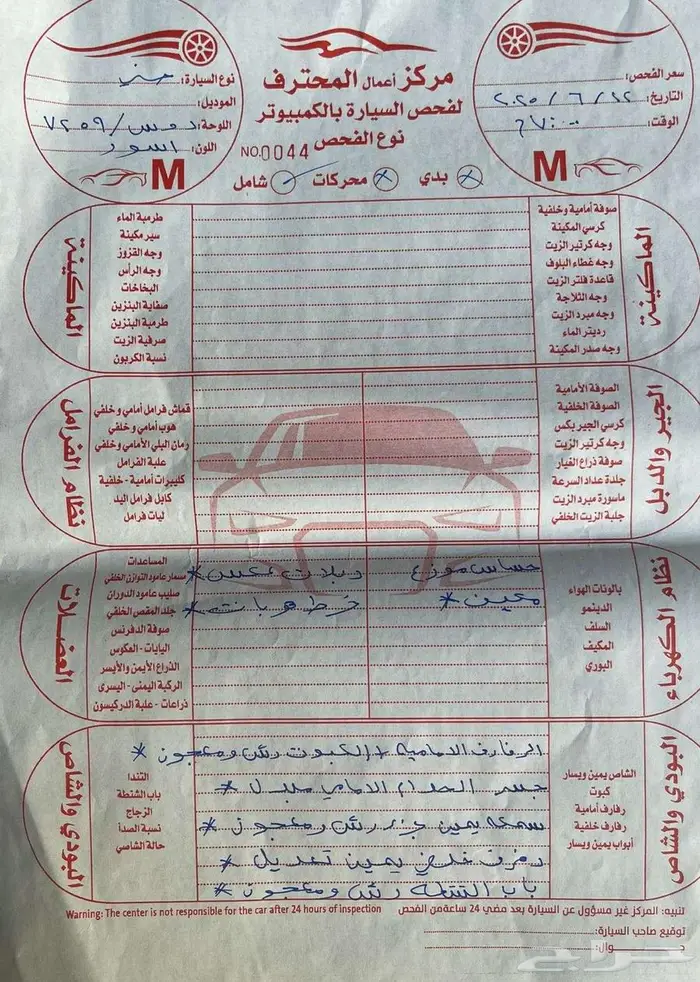 سعر الفحص:
التاريخ: ٢٠٢٥/٦/٢٢
الوقت:
M
مركز أعمال المحترف
لفحص السيارة بالكمبيوتر
نوع الفحص
NO.0044
بدي
محركات
شامل
نوع السيارة:
الموديل:
اللوحة: ٧٢٥٩/
اللون: اسود
M
الماكينة
صوفة أمامية وخلفية
كرسي المكينة
وجه كرتير الزيت
وجه غطاء البلوف
قاعدة فلتر الزيت
وجه الثلاجة
وجه مبرد الزيت
رديتر الماء
وجه صدر المكينة
طرمبة الماء
سير مكينة
وجه القزوز
وجه الرأس
البخاخات
صفاية البنزين
طرمبة البنزين
صرفية الزيت
نسبة الكربون
الماكينة
الجير والدبل
الصوفة الأمامية
الصوفة الخلفية
كرسي الجير بكس
وجه كرتير الزيت
صوفة ذراع الغيار
جلدة عداد السرعة
ماسورة مبرد الزيت
جلبة الزيت الخلفي
قماش فرامل أمامي وخلفي
هوب أمامي وخلفي
رمان البلي الأمامي وخلفي
علبة الفرامل
كليبرات أمامية - خلفية
كابل فرامل اليد
ليات فرامل
نظام الفرامل
نظام الكهرباء
بالونات الهواء
الدينمو
السلف
المكيف
البوري
حساس موزع
مكين *
عكس *
رطوبات *
المساعدات
مسمار عامود التوازن الخلفي
صليب عامود الدوران
جلد المقص الخلفي
صوفة الدفرنس
اليايات - العكوس
الذراع الأيمن والأيسر
الركبة اليمنى - اليسرى
ذراعات - علبة الدركيسون
العضلات
البودي والشاص
الشاص يمين ويسار
كبوت
رفارف أمامية
رفارف خلفية
أبواب يمين ويسار
الرفارف الامامية + الكبوت رش ومعجون *
جسر الصدام الامامي مبدل *
يمين رش ومعجون *
رفرف خلفي يمين تعديل *
باب الشنطة رش ومعجون *
التندا
باب الشنطة
الزجاج
نسبة الصدأ
حالة الشاصي
البودي والشاص
تنبيه: المركز غير مسؤول عن السيارة بعد مضي 24 ساعة من الفحص
Warning: The center is not responsible for the car after 24 hours of inspection
توقيع صاحب السيارة:
حراج